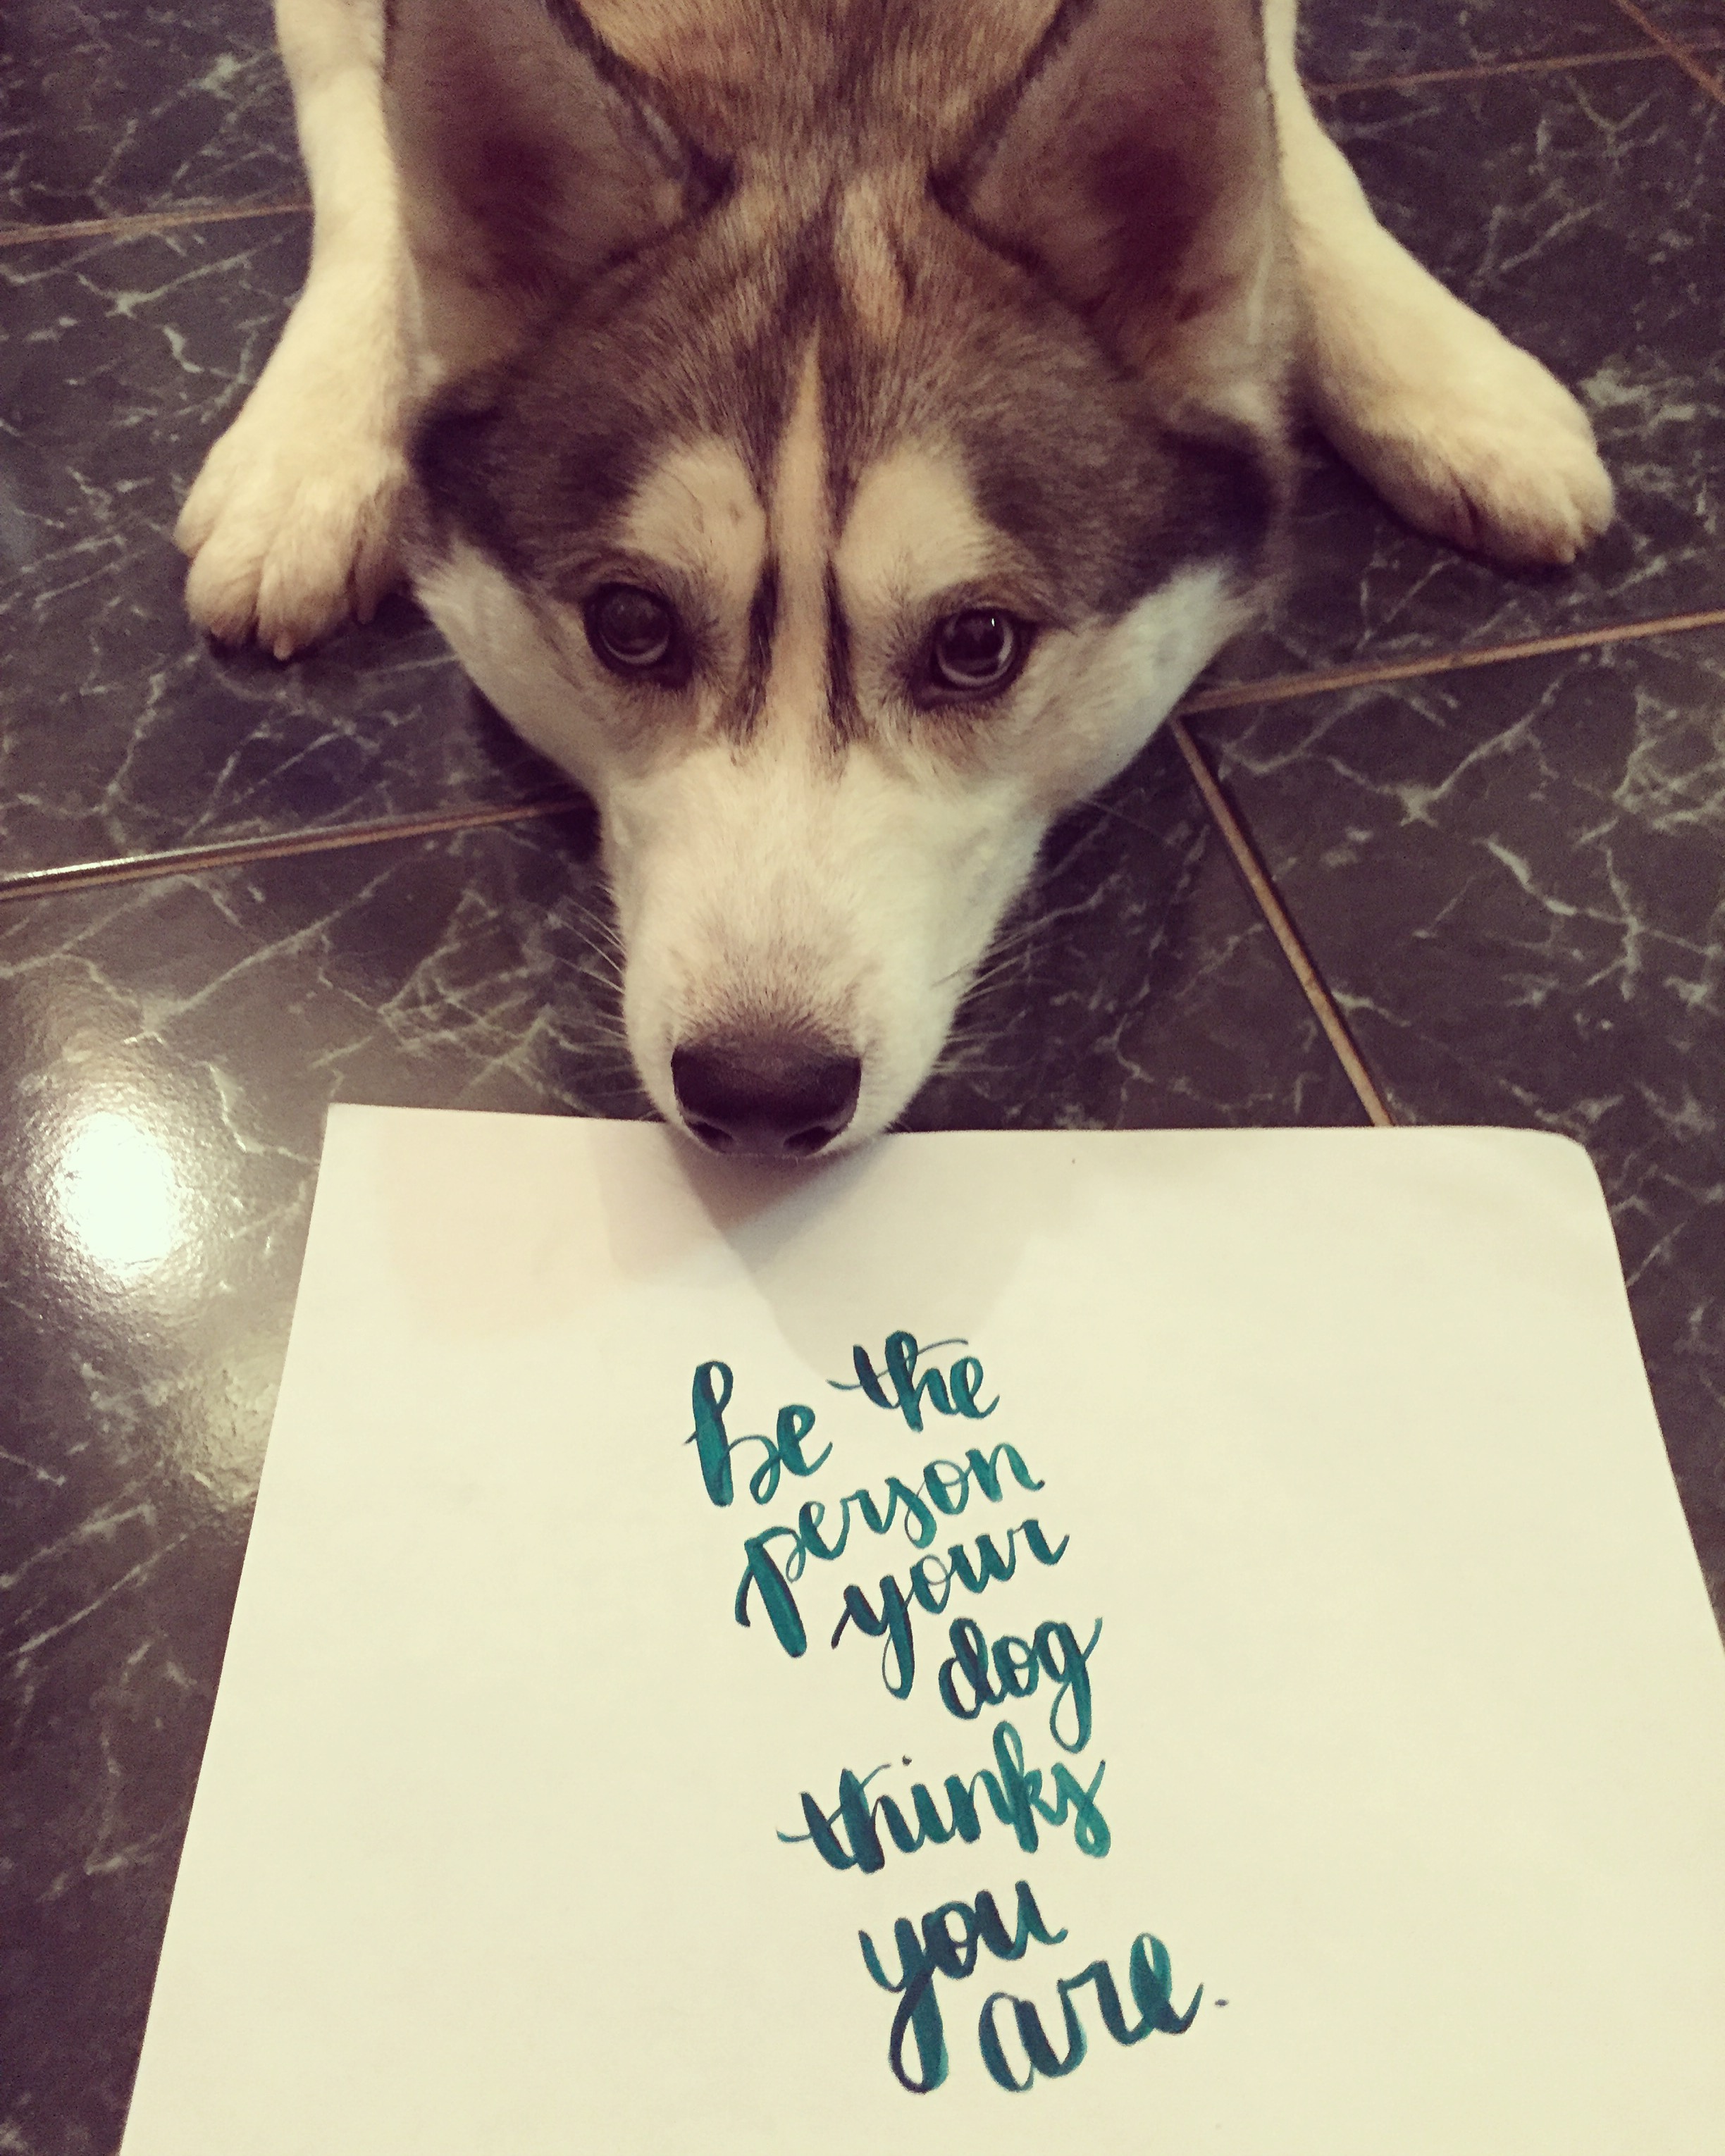 be the
person
your
dog
thinks
you
are.